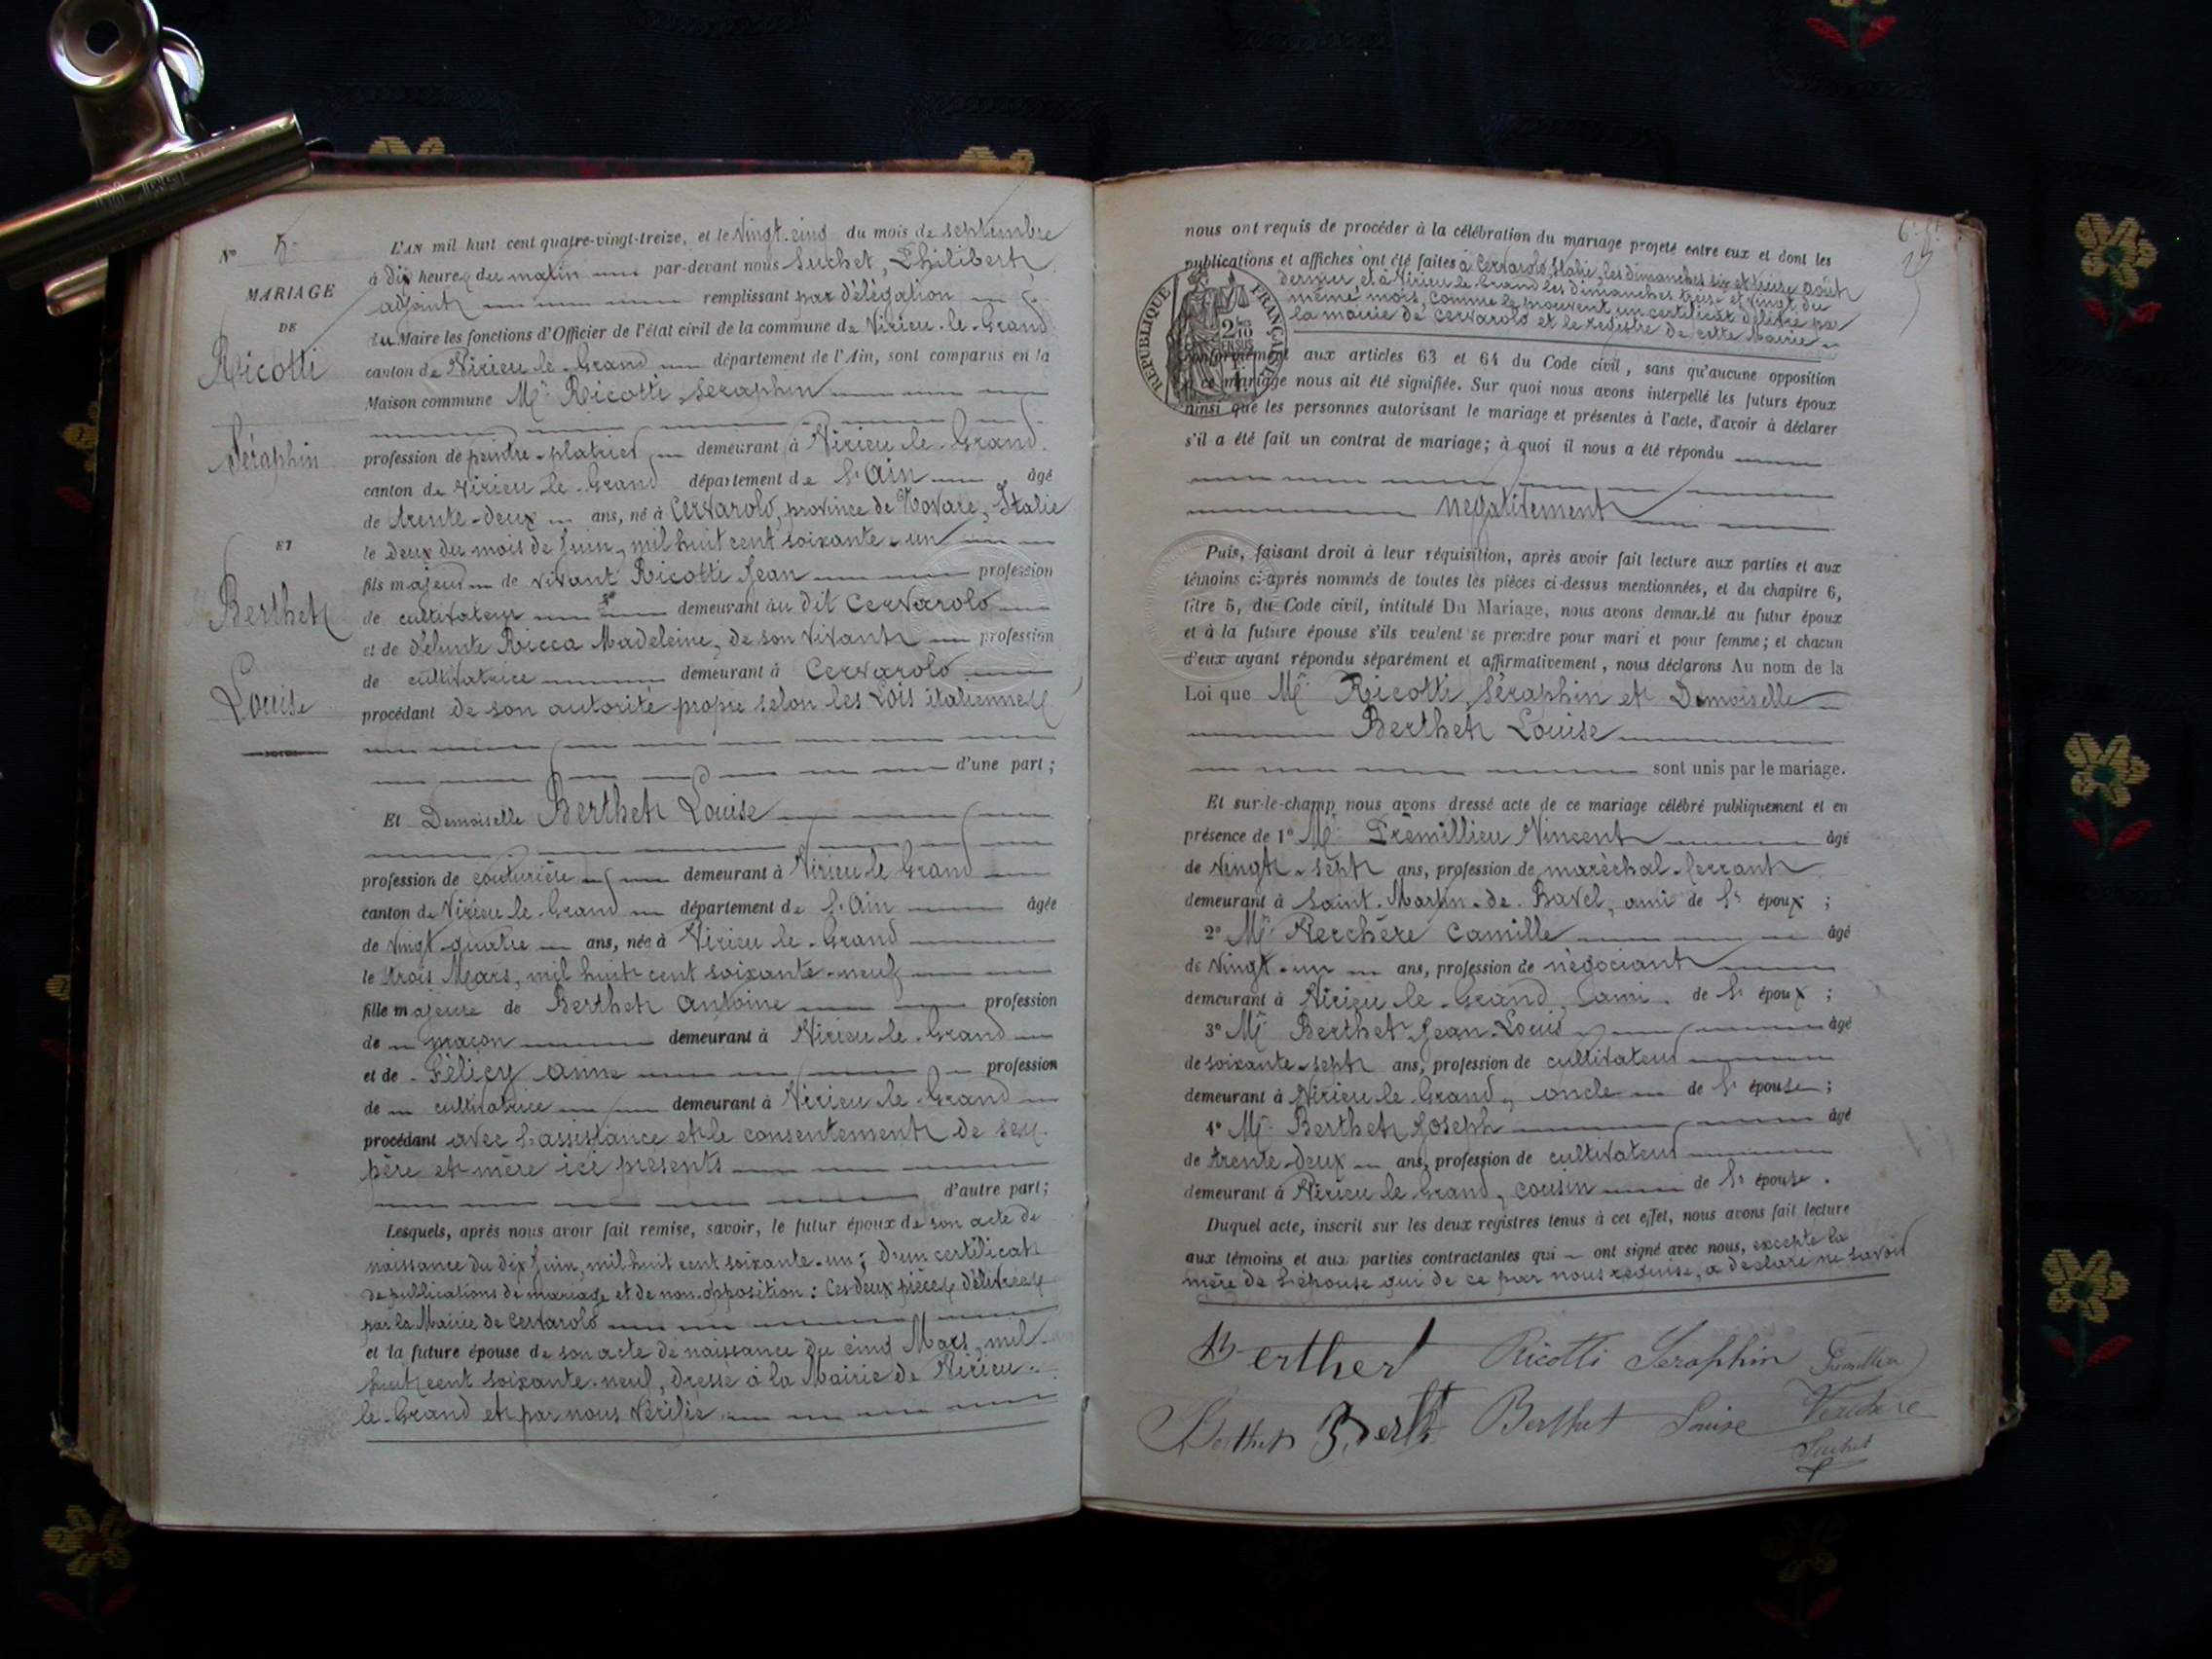 N° 5.
MARIAGE
DE
Ricotti
Séraphin
ET
Berthet
Louise
L'AN mil huit cent quatre-vingt-treize, et le Vingt-cinq du mois de septembre
à dix heures du matin par-devant nous Suchet, Philibert,
adjoint remplissant par délégation
du Maire les fonctions d'Officier de l'état civil de la commune de Virieu-le-Grand
canton de Virieu-le-Grand département de l'Ain, sont comparus en la
Maison commune Mr Ricotti Séraphin
profession de peintre-platrier demeurant à Virieu-le-Grand.
canton de Virieu-le-Grand département de l'Ain âgé
de trente-deux ans, né à Cervarolo, province de Novare, Italie
le deux du mois de Juin, mil huit cent soixante-un
fils majeur de vivant Ricotti Jean profession
de cultivateur demeurant au dit Cervarolo
et de défunte Ricca Madeleine, de son vivant profession
de cultivatrice demeurant à Cervarolo
procédant de son autorité propre selon les Lois italiennes
d'une part;
Et Demoiselle Berthet Louise
profession de couturière demeurant à Virieu-le-Grand
canton de Virieu-le-Grand département de l'Ain âgée
de vingt-quatre ans, née à Virieu-le-Grand
le trois Mars, mil huit cent soixante-neuf
fille majeure de Berthet Antoine profession
de maçon demeurant à Virieu-le-Grand
et de Félicy Anne profession
de cultivatrice demeurant à Virieu-le-Grand
procédant avec l'assistance et le consentement de ses
père et mère ici présents
d'autre part;
Lesquels, après nous avoir fait remise, savoir, le futur époux de son acte de
naissance du dix Juin, mil huit cent soixante-un; d'un certificat
de publications de mariage et de non-opposition: Ces deux pièces délivrées
par la Mairie de Cervarolo
et la future épouse de son acte de naissance du cinq Mars, mil
huit cent soixante-neuf, dressé à la Mairie de Virieu-
le-Grand et par nous vérifié
nous ont requis de procéder à la célébration du mariage projeté entre eux et dont les
publications et affiches ont été faites à Cervarolo, Italie, les dimanches six et treize août
dernier, et à Virieu-le-Grand les dimanches treize et vingt du
même mois, comme le prouvent un certificat délivré par
la mairie de Cervarolo et le registre de cette Mairie
RÉPUBLIQUE FRANÇAISE
2/10 EN SUS
conformément aux articles 63 et 64 du Code civil, sans qu'aucune opposition
à ce mariage nous ait été signifiée. Sur quoi nous avons interpellé les futurs époux
ainsi que les personnes autorisant le mariage et présentes à l'acte, d'avoir à déclarer
s'il a été fait un contrat de mariage; à quoi il nous a été répondu
négativement
Puis, faisant droit à leur réquisition, après avoir fait lecture aux parties et aux
témoins ci-après nommés de toutes les pièces ci-dessus mentionnées, et du chapitre 6,
titre 5, du Code civil, intitulé Du Mariage, nous avons demandé au futur époux
et à la future épouse s'ils veulent se prendre pour mari et pour femme; et chacun
d'eux ayant répondu séparément et affirmativement, nous déclarons Au nom de la
Loi que Mr Ricotti, Séraphin et Demoiselle
Berthet Louise
sont unis par le mariage.
Et sur-le-champ nous avons dressé acte de ce mariage célébré publiquement et en
présence de 1° Mr Prémillieu Vincent âgé
de vingt-sept ans, profession de maréchal-ferrant
demeurant à Saint-Martin-de-Bavel, ami de l' époux;
2° Mr Verchère Camille âgé
de vingt-un ans, profession de négociant
demeurant à Virieu-le-Grand, ami de l' époux;
3° Mr Berthet Jean-Louis âgé
de soixante-sept ans, profession de cultivateur
demeurant à Virieu-le-Grand, oncle de l' épouse;
4° Mr Berthet Joseph âgé
de trente-deux ans, profession de cultivateur
demeurant à Virieu-le-Grand, cousin de l' épouse.
Duquel acte, inscrit sur les deux registres tenus à cet effet, nous avons fait lecture
aux témoins et aux parties contractantes qui ont signé avec nous, excepté la
mère de l'épouse qui de ce par nous requise, a déclaré ne savoir
Berthet Ricotti Séraphin
Berthet Berthet Louise Verchère
Suchet